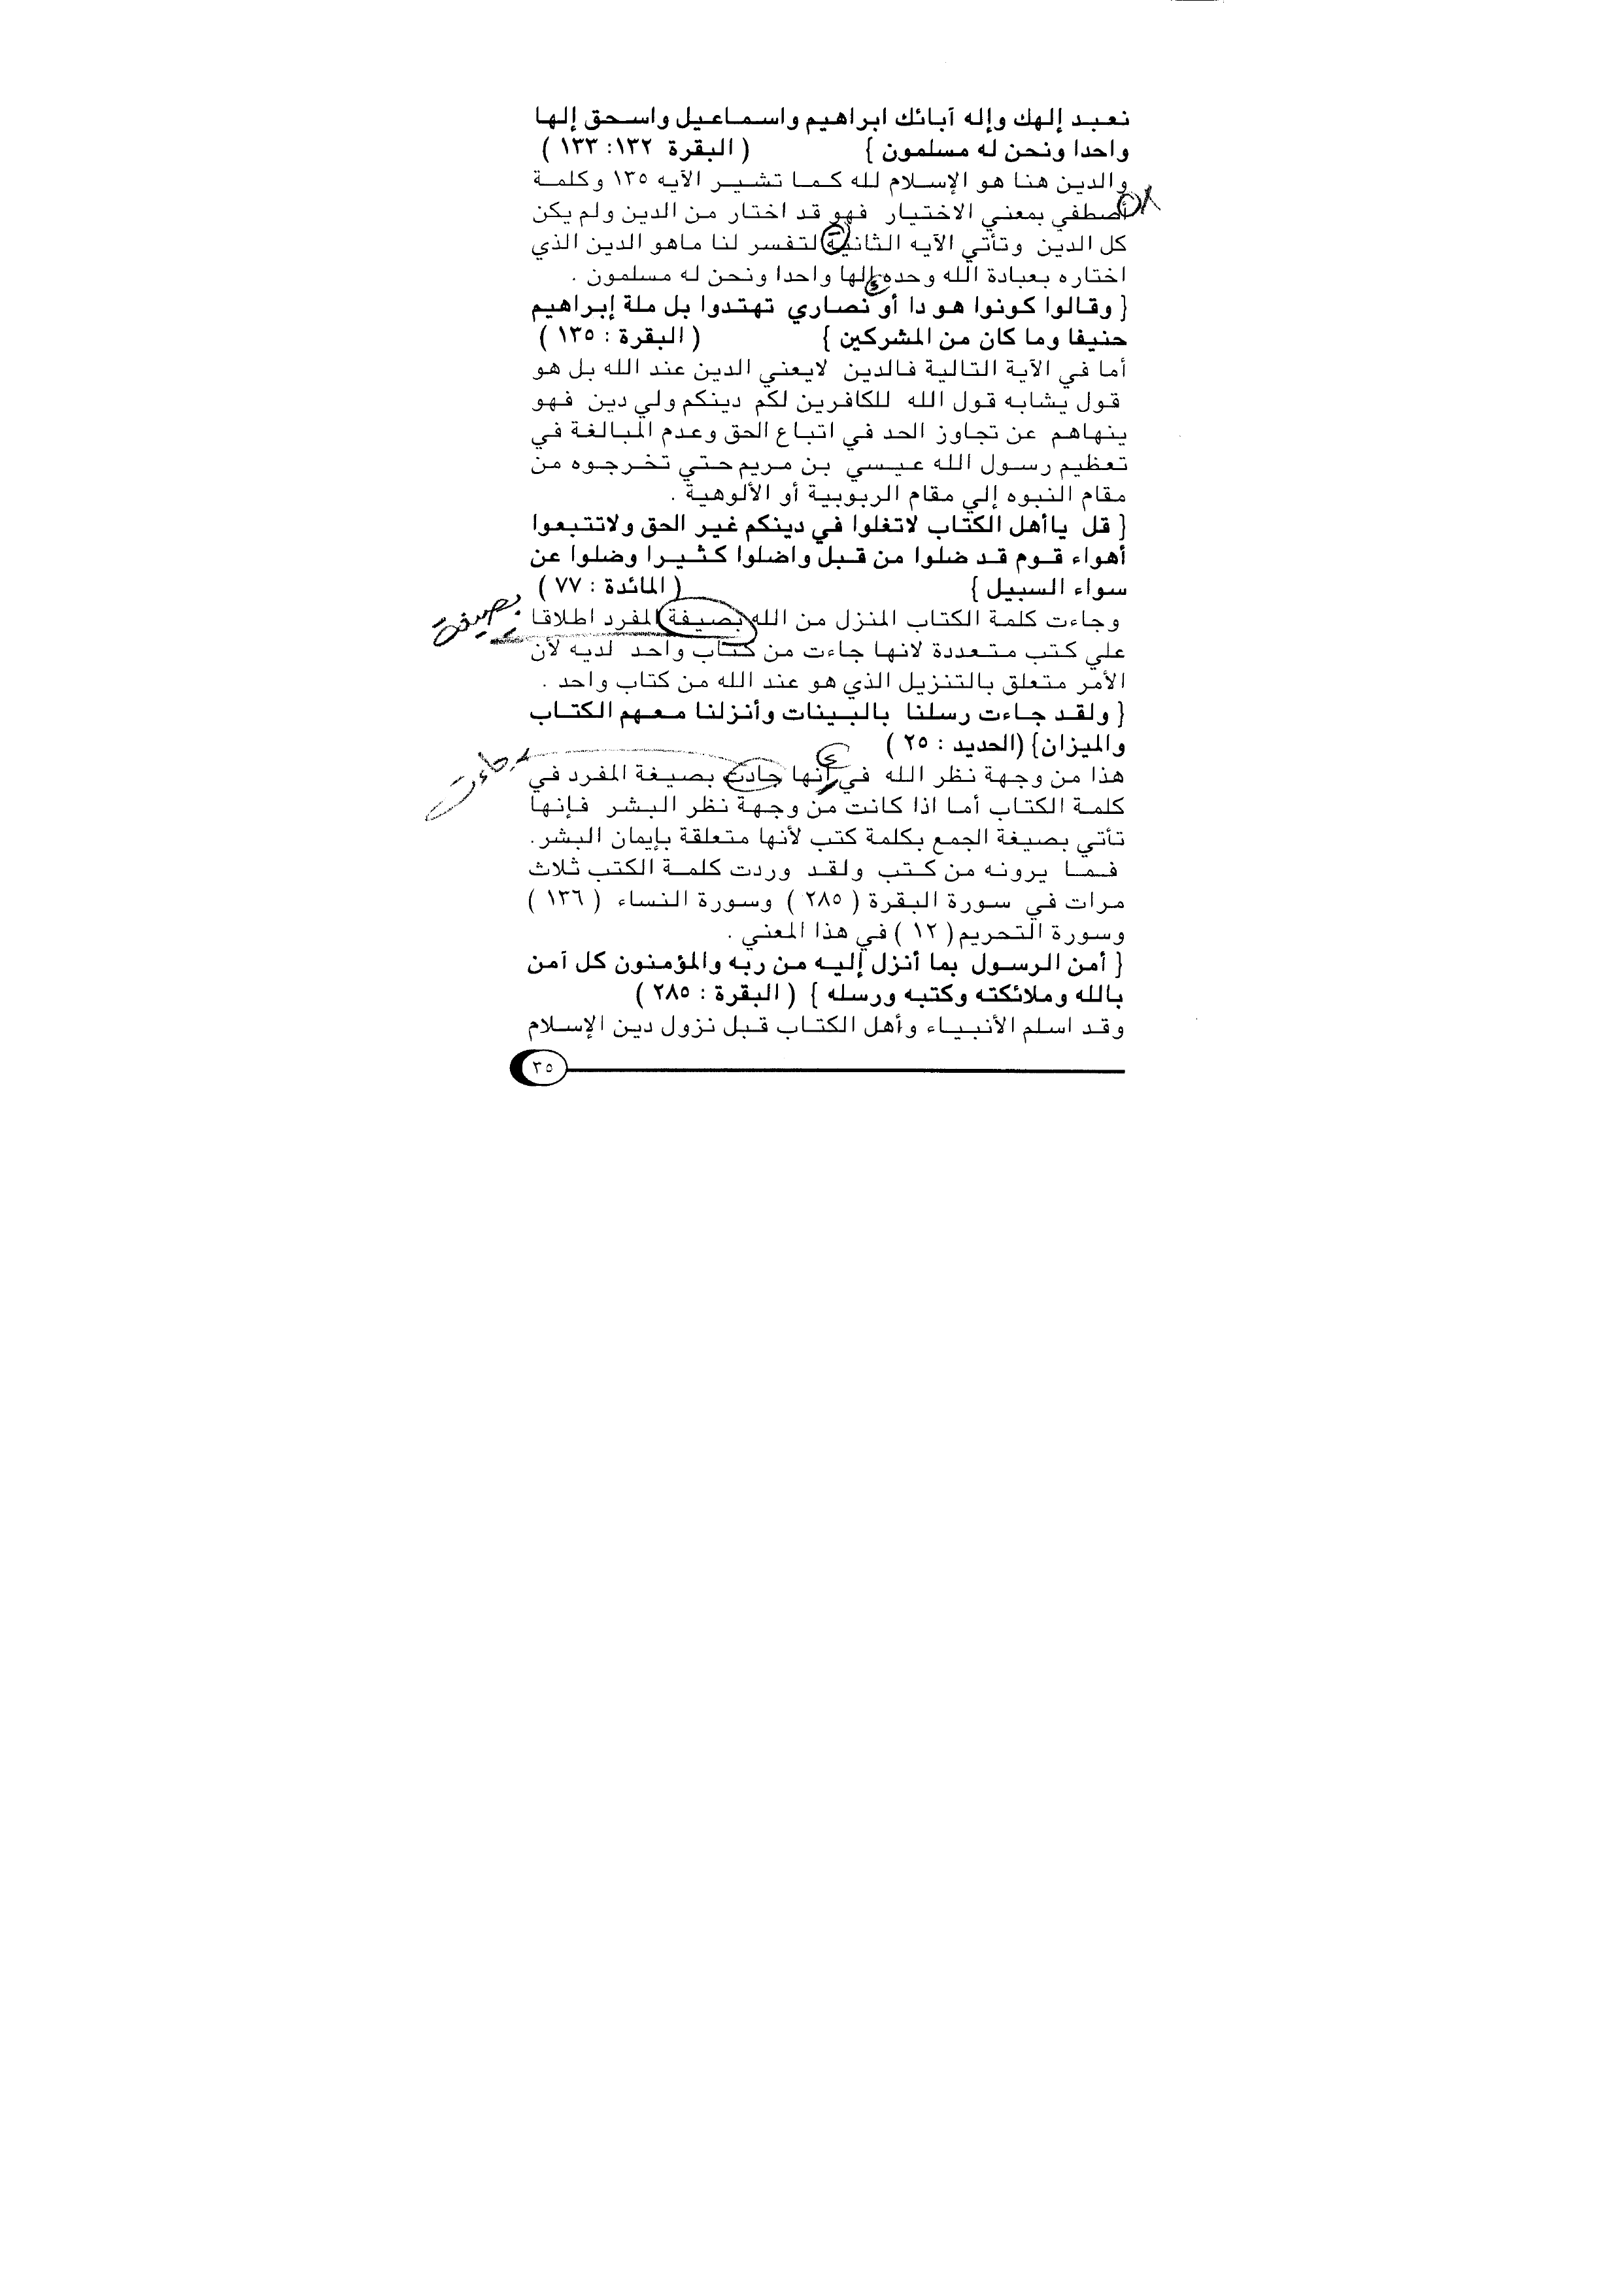 نعبد إلهك وإله آبائك ابراهيم واسماعيل واسحق إلها
واحدا ونحن له مسلمون } ( البقرة ١٣٢: ١٣٣ )
والدين هنا هو الإسلام لله كما تشير الآيه ١٣٥ وكلمة
أصطفي بمعني الاختيار فهو قد اختار من الدين ولم يكن
كل الدين وتأتي الآيه الثانية لتفسر لنا ماهو الدين الذي
اختاره بعبادة الله وحده إلها واحدا ونحن له مسلمون .
{ وقالوا كونوا هو دا أو نصاري تهتدوا بل ملة إبراهيم
حنيفا وما كان من المشركين } ( البقرة : ١٣٥ )
أما في الآية التالية فالدين لايعني الدين عند الله بل هو
قول يشابه قول الله للكافرين لكم دينكم ولي دين فهو
ينهاهم عن تجاوز الحد في اتباع الحق وعدم المبالغة في
تعظيم رسول الله عيسي بن مريم حتي تخرجوه من
مقام النبوه إلي مقام الربوبية أو الألوهية .
{ قل ياأهل الكتاب لاتغلوا في دينكم غير الحق ولاتتبعوا
أهواء قوم قد ضلوا من قبل واضلوا كثيرا وضلوا عن
سواء السبيل } ( المائدة : ٧٧ )
وجاءت كلمة الكتاب المنزل من الله بصيفة المفرد اطلاقا
بصيغة
علي كتب متعددة لانها جاءت من كتاب واحد لديه لأن
الأمر متعلق بالتنزيل الذي هو عند الله من كتاب واحد .
{ ولقد جاءت رسلنا بالبينات وأنزلنا معهم الكتاب
والميزان} (الحديد : ٢٥ )
هذا من وجهة نظر الله في أنها جادت بصيغة المفرد في
جاءت
كلمة الكتاب أما اذا كانت من وجهة نظر البشر فإنها
تأتي بصيغة الجمع بكلمة كتب لأنها متعلقة بإيمان البشر.
فما يرونه من كتب ولقد وردت كلمة الكتب ثلاث
مرات في سورة البقرة ( ٢٨٥ ) وسورة النساء ( ١٣٦ )
وسورة التحريم ( ١٢ ) في هذا المعني .
{ أمن الرسول بما أنزل إليه من ربه والمؤمنون كل آمن
بالله وملائكته وكتبه ورسله } ( البقرة : ٢٨٥ )
وقد اسلم الأنبياء وأهل الكتاب قبل نزول دين الإسلام
٣٥